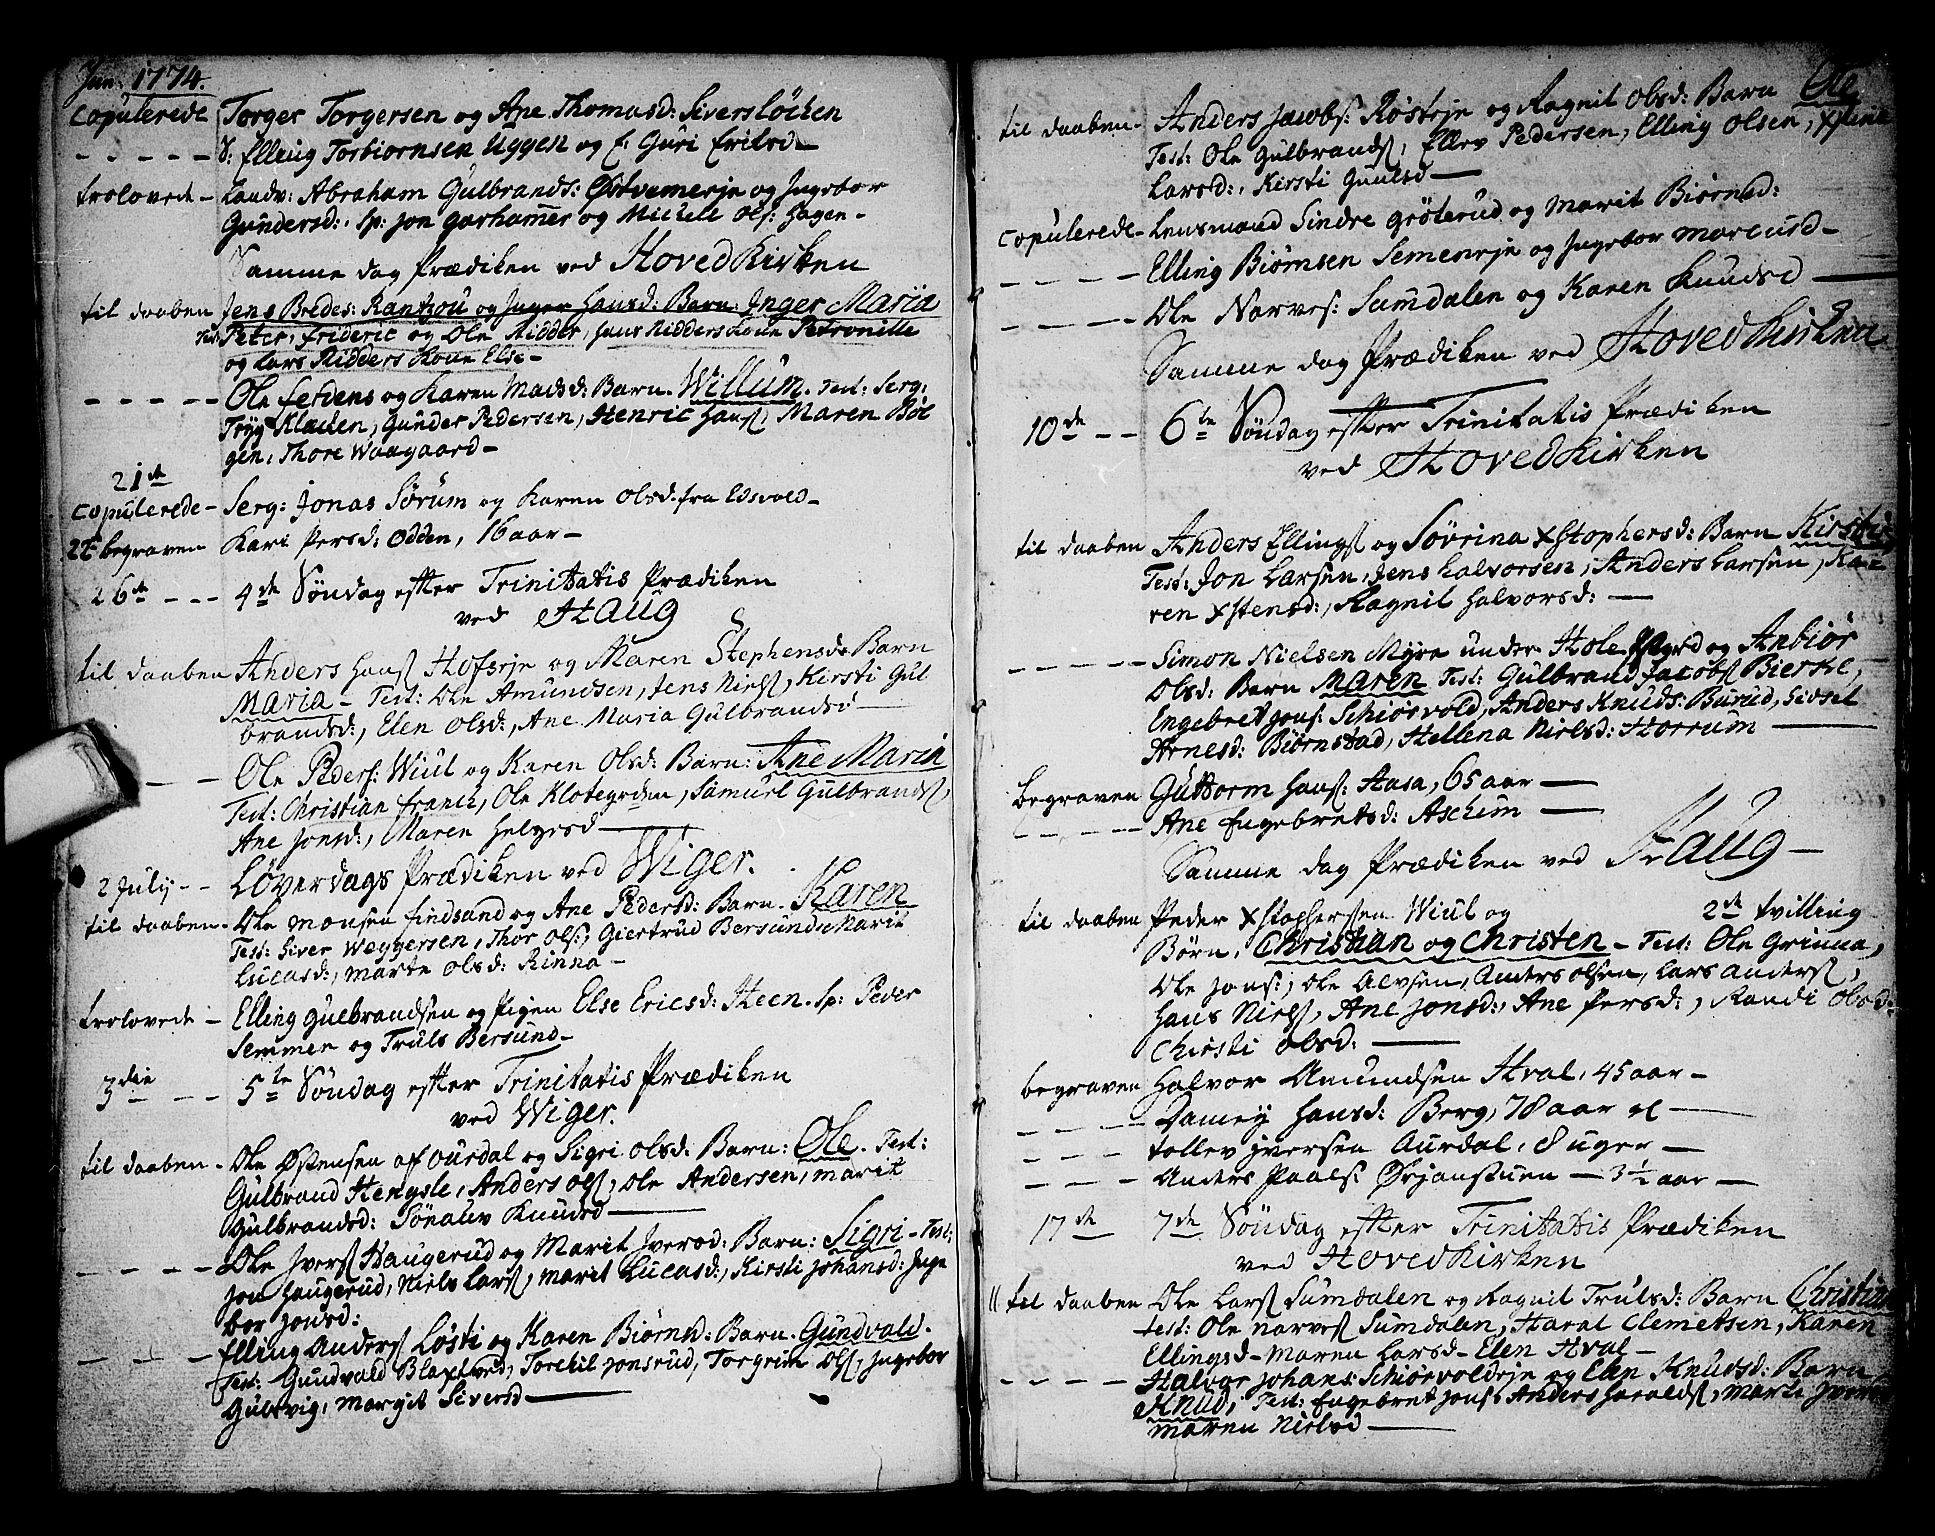 Jun: 1774.
Copulerede Torger Torgersen og Ane Thomasd: Sivers Löcken
- - - - - S: Elling Torbiornsen Uggen og E: Guri Ericsd -
trolovede - Landv: Abraham Gulbrands: Østvumerje og Ingebor
Gundersd:. sp: Jon Garhamer og Michele Ols: Hagen -
Samme dag Prædiken ved Hoved Kirken
til daaben Jens Bredes: Rantzou og Inger Hansd: Barn: Inger Maria
Peter, Frideric og Ole Ridder, Hans Ridders Kone Petronille
og Lars Ridders Kone Else -
- - - - - Ole Jerdens og Karen Madsd: Barn. Willum. Test: Serg:
Tryg Kladen, Gunder Pedersen, Henric Hans, Maren Böl
gen, Thore Waagaard -
21de
Copulerede - Serg: Jonas Sørum og Karen Olsd: fra Edsvold -
22 begraven Kari Persd: Odden, 16 aar -
26de - - - 4de Söndag efter Trinitatis Prædiken
ved Haug
til daaben Anders Hans Hofserje og Maren Stephensd: Barn
Maria - Test: Ole Amundsen, Jens Niels, Kirsti Gul
brandsd:, Elen Olsd:, Ane Maria Gulbrandsd -
- - Ole Peders: Wiul og Karen Olsd: Barn: Ane Maria
Test: Christian Franck, Ole Klokegrden, Samuel Gulbrands,
Ane Jonsd:, Maren Helgesd -
2 July - - Löverdags Prædiken ved Wiger.
til daaben - Ole Monsen Findsand og Ane Pedersd: Barn. Karen
Test: Siver Weggersen, Thor Ols:, Giertrud Bersund, Marit
Lucasd:, Marte Olsd: Rinna -
trolovede - Elling Gulbrandsen og Pigen Else Ericsd: Steen. sp: Peder
Semmen og Truls Bersund -
3die - - 5te Söndag efter Trinitatis Prædiken
ved Wiger.
til daaben - Ole Østensen af Ourdal og Sigri Olsd: Barn: Ole. Test:
Gulbrand Hengsle, Anders Ols, Ole Andersen, Marit
Gulbrandsd: Sønalev Knudsd -
- - - - - Ole Ivers Haugerud og Marit Iversd: Barn: Sigri - Test:
Jon Haugerud, Niels Lars, Marit Lucasd:, Kirsti Johansd: Inge
bor Jonsd:
- - - - Elling Anders Løsti og Karen Biørnsd: Barn. Gundvald.
Test: Gundvald, Torekil Jonsrud, Torgrim Ols, Ingebor
Gulsvig, Margit Siversd -
til daaben - Anders Jacobs: Røsterje og Ragnil Olsd: Barn Ole
Test: Ole Gulbrands, Ellev Pedersen, Elling Olsen, Xstine
Larsd:, Kirsti Guulsd -
Copulerede - Lensmand Sindre Gröterud og Marit Biørnsd:
- - - - Elling Biørnsen Semenerje og Ingebor Marcusd -
- - - - Ole Narves: Sumdalen og Karen Knudsd -
Samme dag Prædiken ved Hoved Kirken
10de - - 6te Söndag efter Trinitatis Prædiken
ved Hoved Kirken
til daaben Anders Ellings og Sövrina Xstophersd: Barn Kirsti
Test: Jon Larsen, Jens Halvorsen, Anders Larsen, Ka-
ren Xstensd:, Ragnil Halvorsd: -
- - - - - Simon Nielsen Myra under Hole og Anbiör
Olsd: Barn Maren Test: Gulbrand Jacobs Bierke,
Engebret Jons: Schiörvold, Anders Knuds: Burud, Sidsel
Arnesd: Biörnstad, Hellena Nielsd: Horrum -
begraven Guttorm Hans: Aasa, 65 aar -
- - - - - Ane Engebretsd: Aschim -
Samme dag Prædiken ved Haug -
til daaben Peder Xstophersen Wiul og 2de tvilling
Börn. Christian og Christen - Test: Ole Grinna,
Ole Jons:, Ole Alvsen, Anders Olsen, Lars Anders,
Hans Niels, Ane Jonsd:, Ane Persd:, Randi Olsd:
Chirsti Olsd: -
begraven Halvor Amundsen Hval, 45 aar -
- - - - Damey Hansd: Berg, 78 aar gl -
- - - - Tollev Iversen Aurdal, 8 uger -
- - - - Anders Paals: Ørjanstuen - 3 1/2 aar -
17de 7de Söndag efter Trinitatis Prædiken
ved Hoved Kirken
til daaben Ole Lars Sumdalen og Ragnil Trulsd: Barn Christian
Test: Ole Narves Sumdalen, Haral Clemetsen, Karen
Ellingsd - Maren Larsd - Elen Hval -
- - - - Halvor Johans: Schiörvoldrje og Elen Knudsd: Barn
Knud, Test: Engebret Jons: Anders Haralds, Marte
Maren Nielsd -